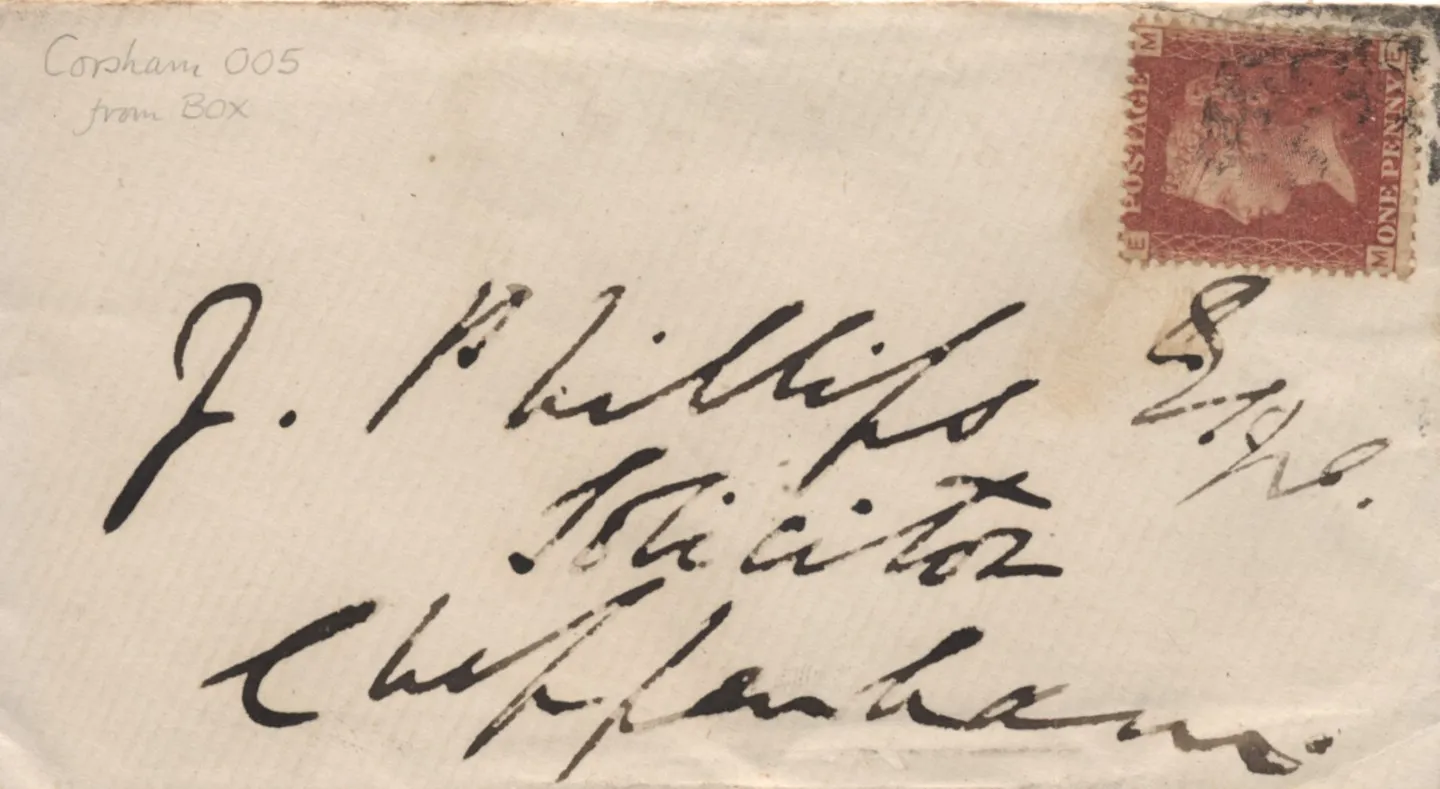 Corsham 005
from Box
M E
POSTAGE
ONE PENNY
E M
J. Phillips Esqre.
Solicitor
Chippenham.